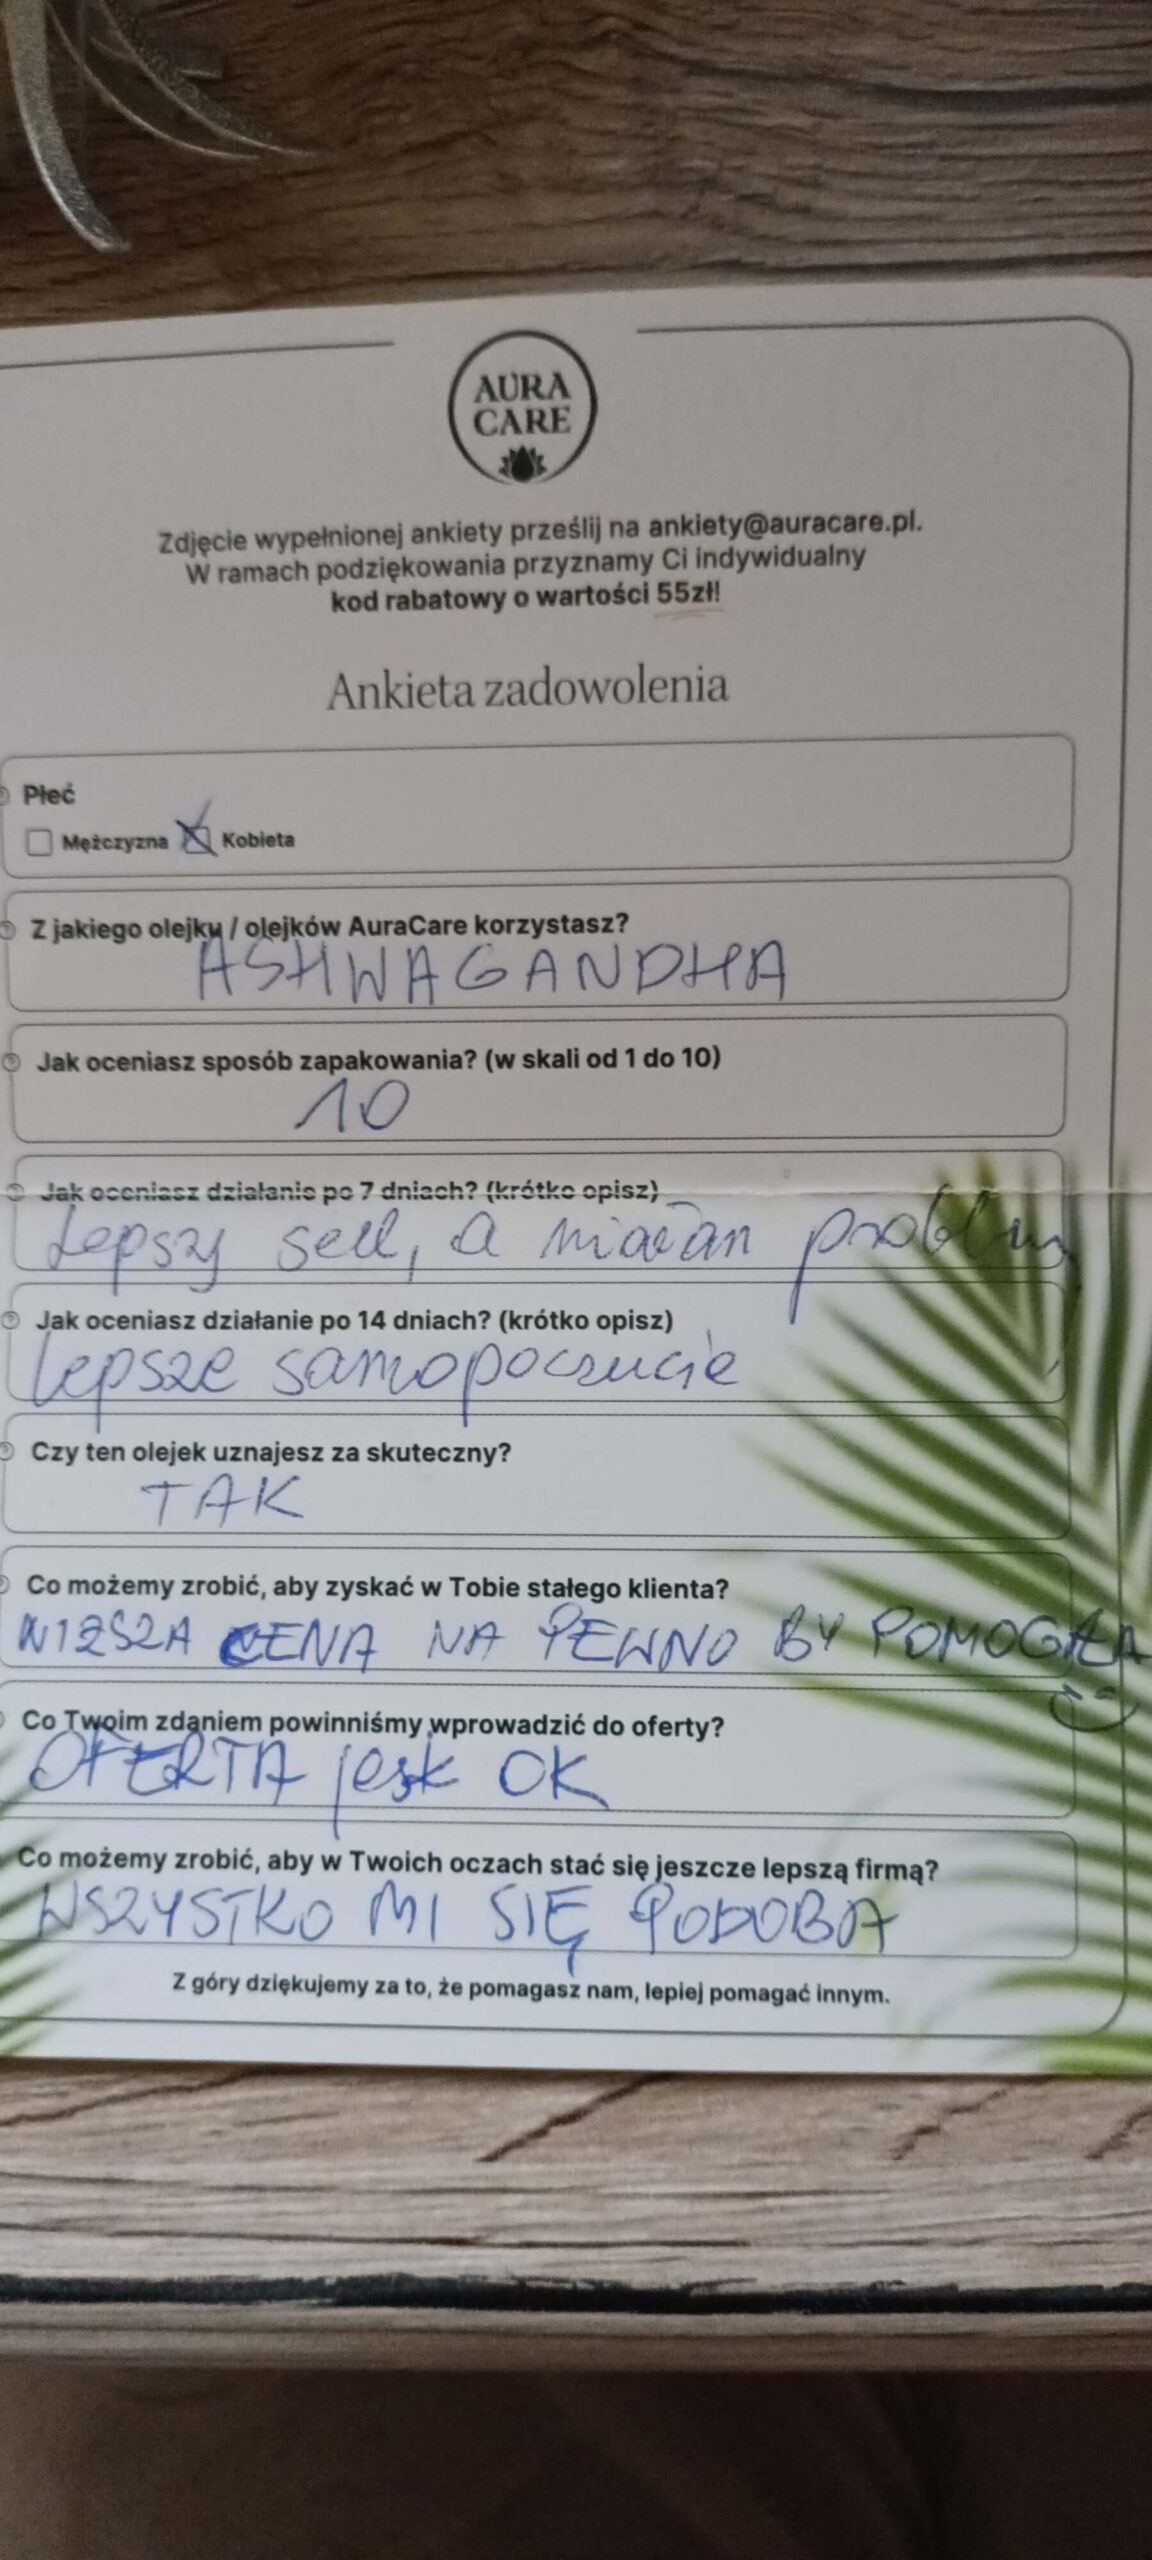 AURA
CARE
Zdjęcie wypełnionej ankiety prześlij na ankiety@auracare.pl.
W ramach podziękowania przyznamy Ci indywidualny
kod rabatowy o wartości 55zł!
Ankieta zadowolenia
Płeć
Mężczyzna Kobieta
Z jakiego olejku / olejków AuraCare korzystasz?
ASHWAGANDHA
Jak oceniasz sposób zapakowania? (w skali od 1 do 10)
10
Jak oceniasz działanie po 7 dniach? (krótko opisz)
Lepszy sen, a miałam problem
Jak oceniasz działanie po 14 dniach? (krótko opisz)
lepsze samopoczucie
Czy ten olejek uznajesz za skuteczny?
TAK
Co możemy zrobić, aby zyskać w Tobie stałego klienta?
NIŻSZA CENA NA PEWNO BY POMOGŁA
Co Twoim zdaniem powinniśmy wprowadzić do oferty?
OFERTA jest OK
Co możemy zrobić, aby w Twoich oczach stać się jeszcze lepszą firmą?
WSZYSTKO MI SIĘ PODOBA
Z góry dziękujemy za to, że pomagasz nam, lepiej pomagać innym.